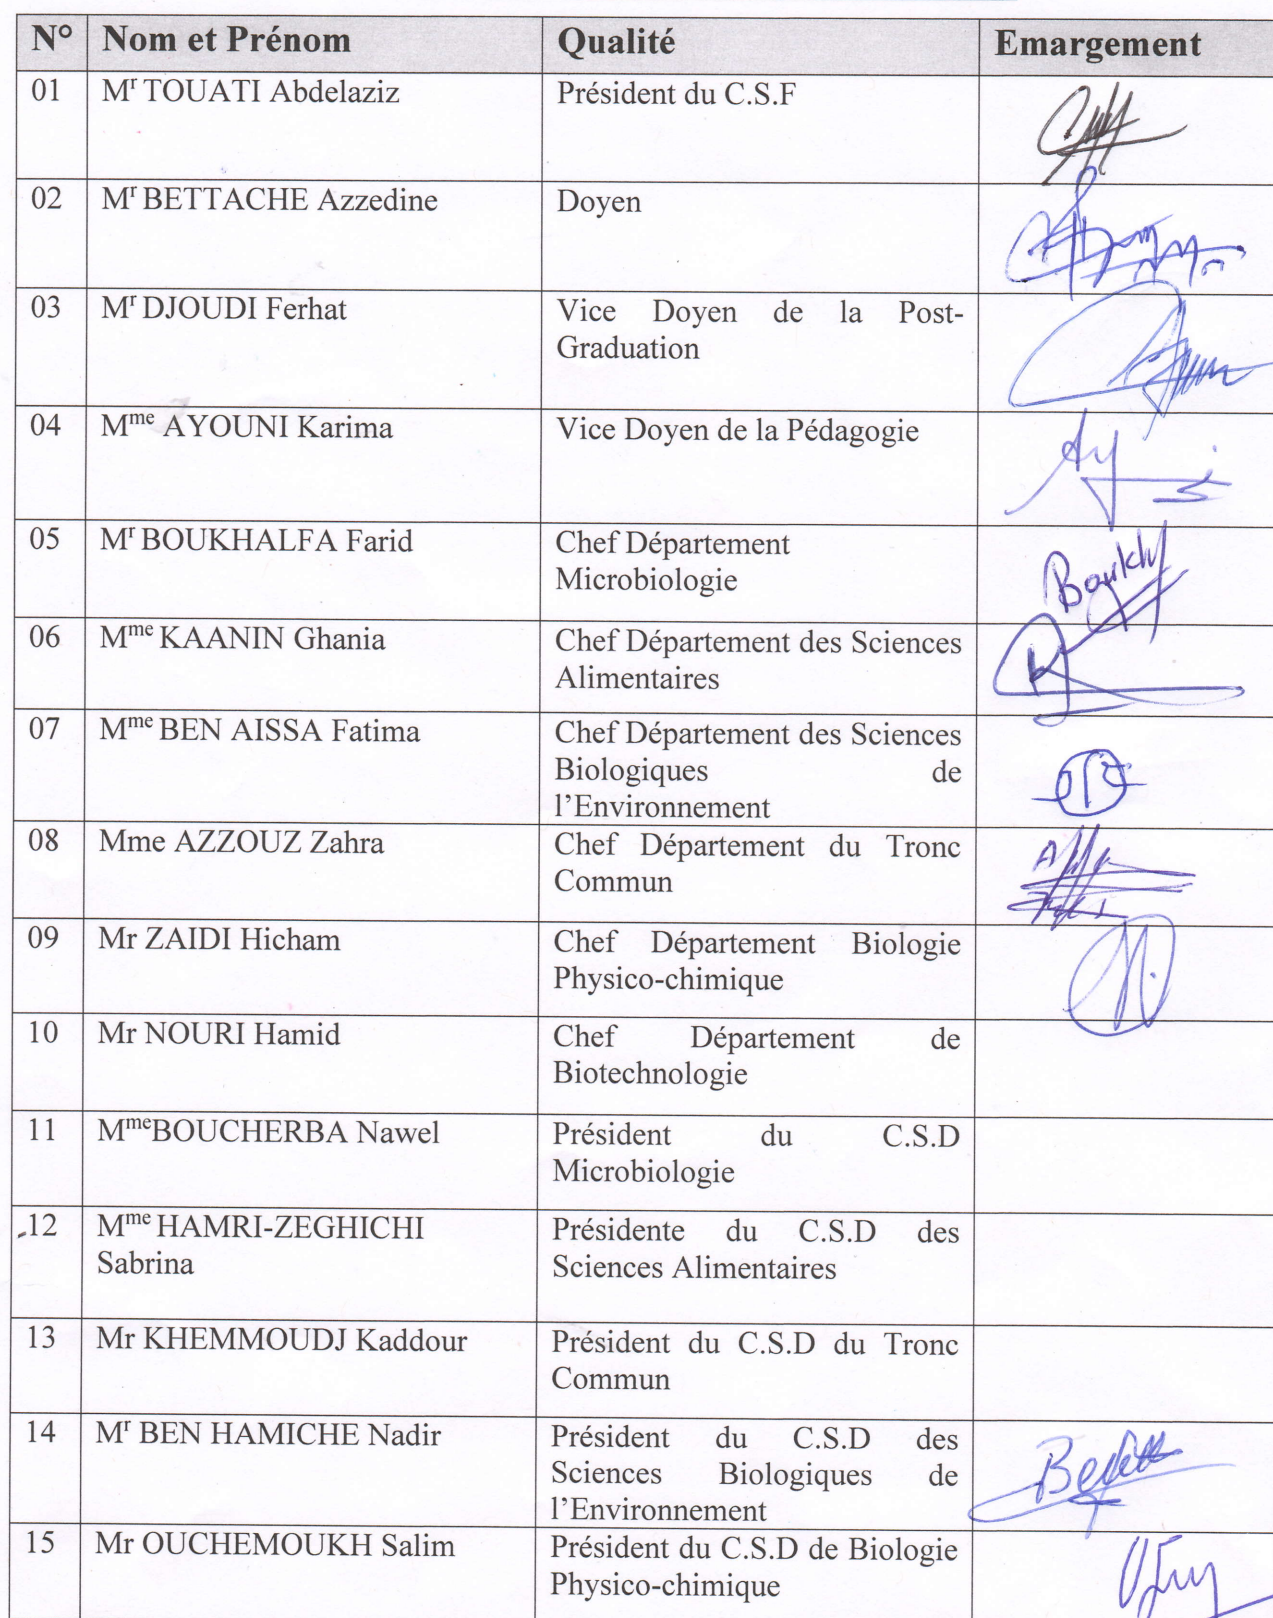 N° Nom et Prénom Qualité Emargement
01 Mr TOUATI Abdelaziz Président du C.S.F
02 Mr BETTACHE Azzedine Doyen
03 Mr DJOUDI Ferhat Vice Doyen de la Post-
Graduation
04 Mme AYOUNI Karima Vice Doyen de la Pédagogie
05 Mr BOUKHALFA Farid Chef Département
Microbiologie
06 Mme KAANIN Ghania Chef Département des Sciences
Alimentaires
07 Mme BEN AISSA Fatima Chef Département des Sciences
Biologiques de
l’Environnement
08 Mme AZZOUZ Zahra Chef Département du Tronc
Commun
09 Mr ZAIDI Hicham Chef Département Biologie
Physico-chimique
10 Mr NOURI Hamid Chef Département de
Biotechnologie
11 MmeBOUCHERBA Nawel Président du C.S.D
Microbiologie
12 Mme HAMRI-ZEGHICHI Présidente du C.S.D des
Sabrina Sciences Alimentaires
13 Mr KHEMMOUDJ Kaddour Président du C.S.D du Tronc
Commun
14 Mr BEN HAMICHE Nadir Président du C.S.D des
Sciences Biologiques de
l’Environnement
15 Mr OUCHEMOUKH Salim Président du C.S.D de Biologie
Physico-chimique